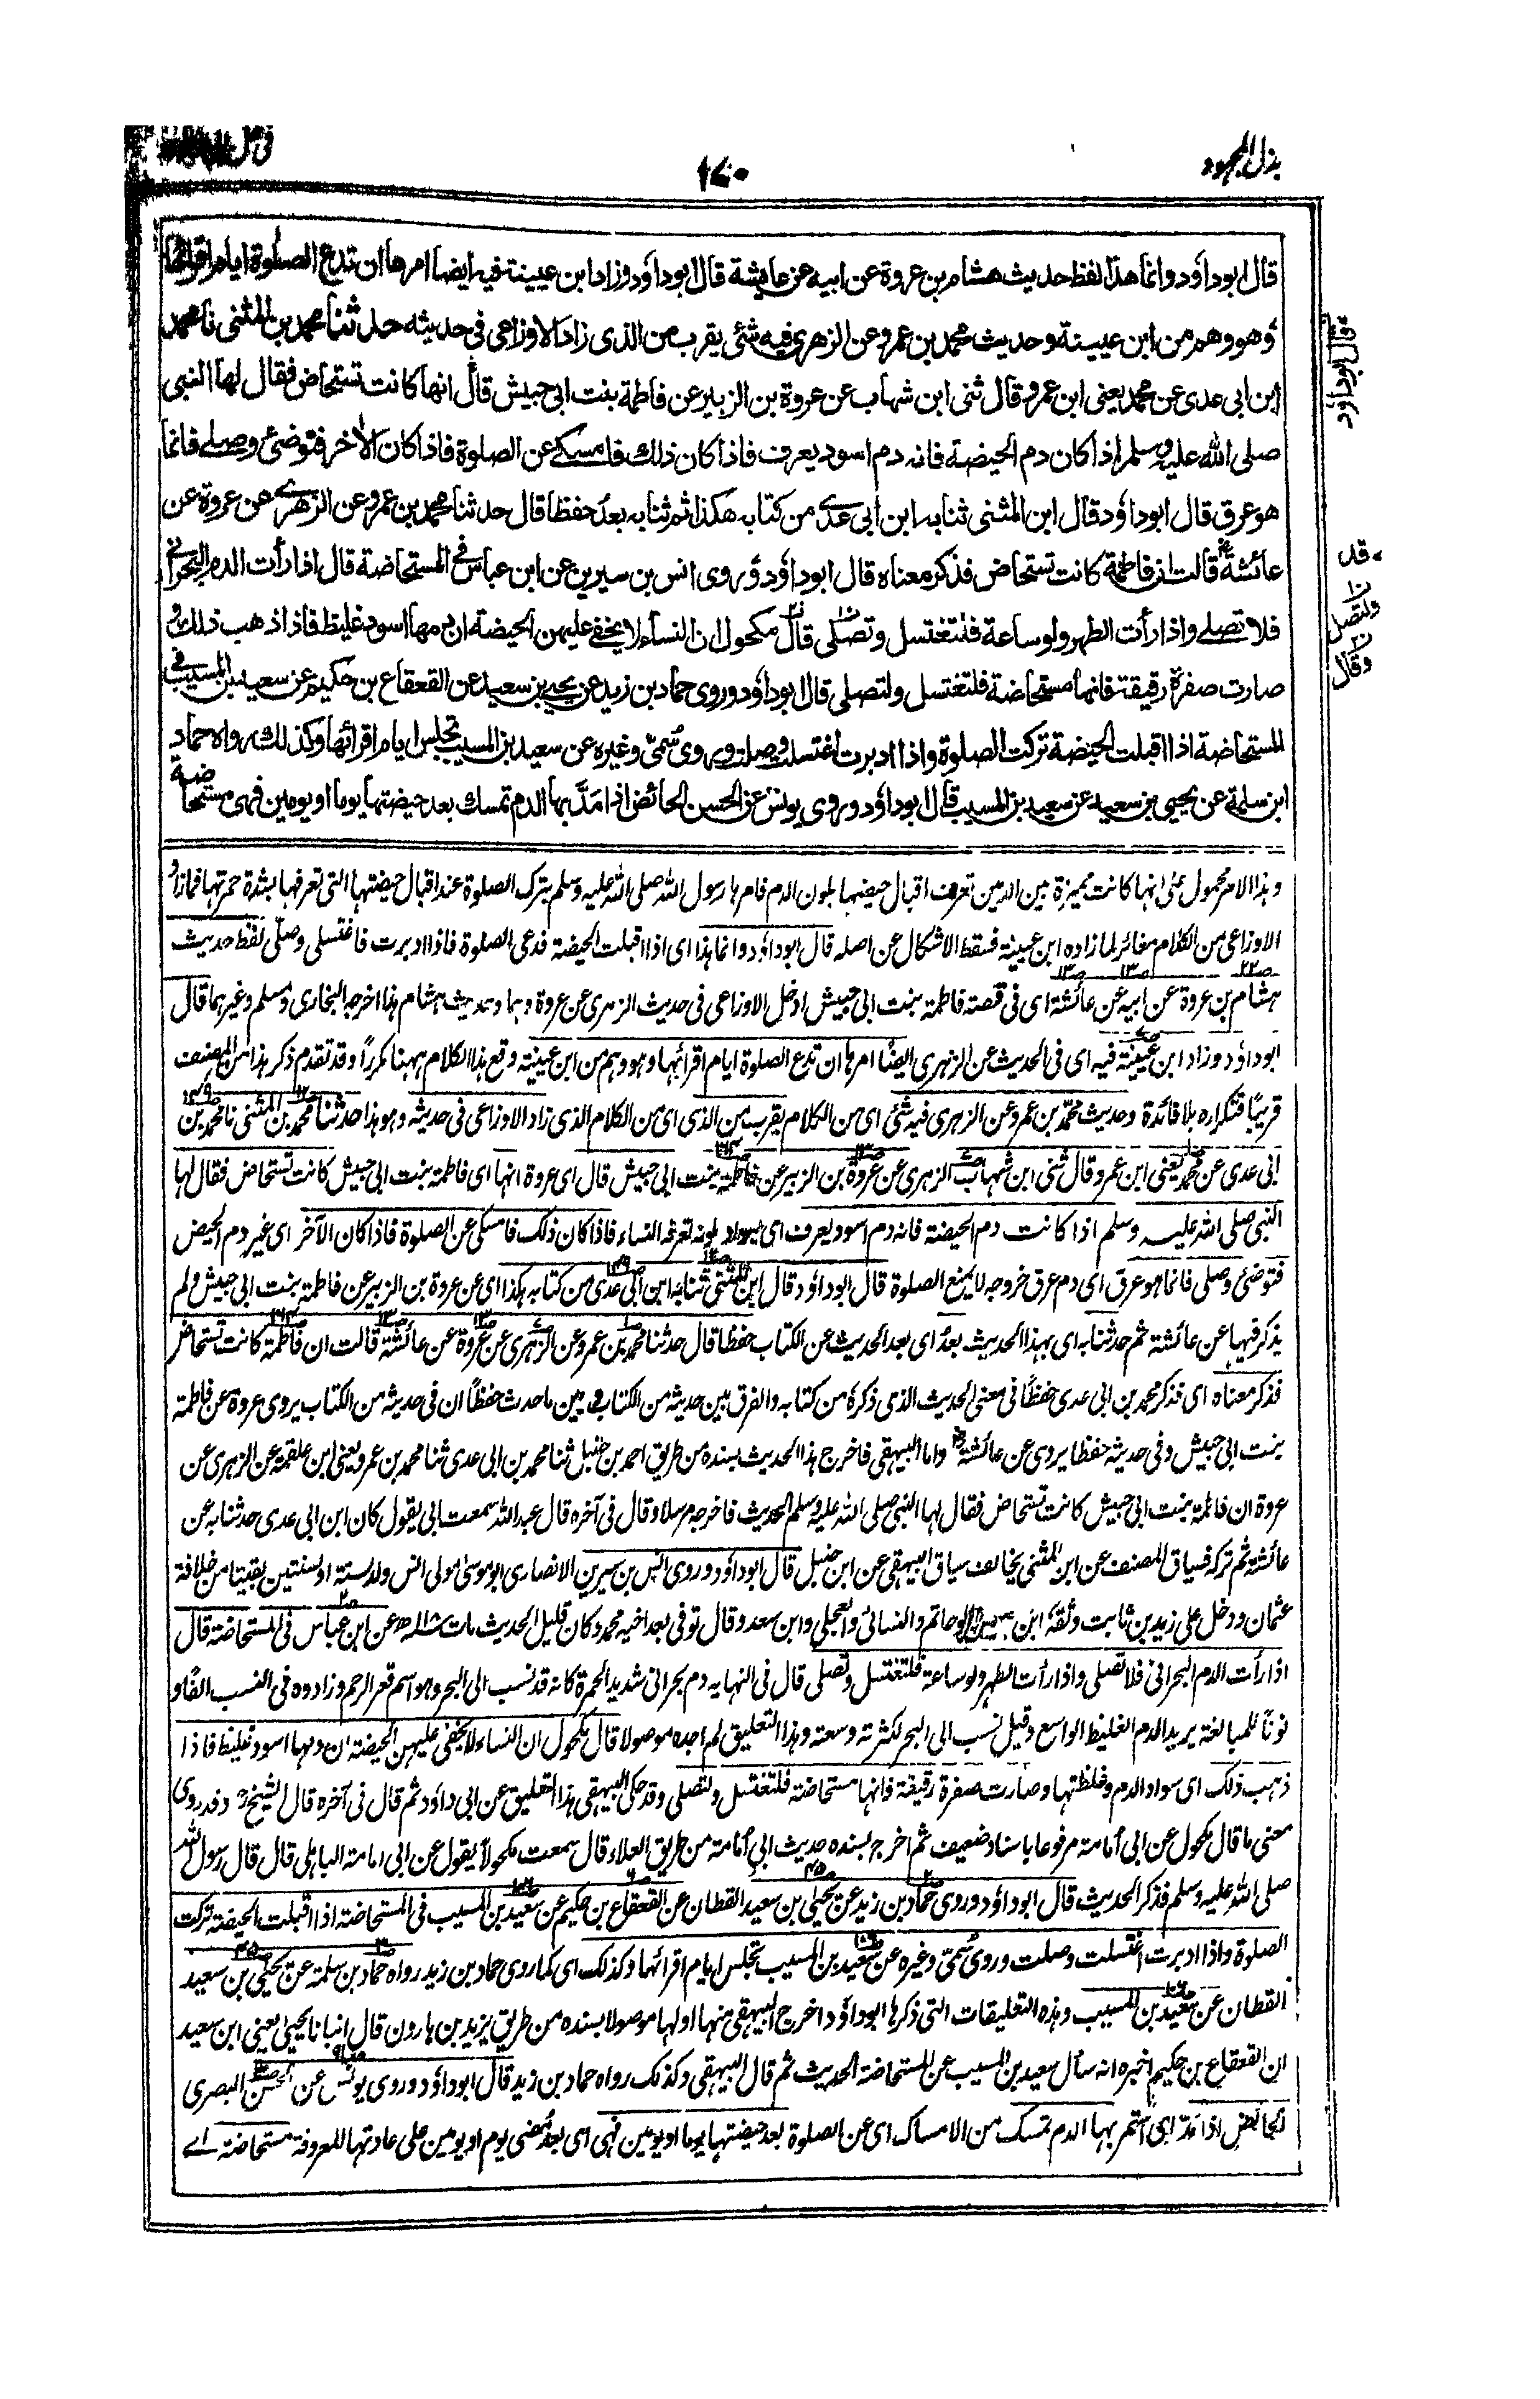 بذل المجهود
١٧٠
في حل
قال ابوداؤد وانما هذا لفظ حديث هشام بن عروة عن ابيه عن عايشة قال ابوداؤد وزاد ابن عيينة فيه ايضا امرها ان تدع الصلوة ايام اقرائها
وهو وهم من ابن عيينة وحديث محمد بن عمرو عن الزهري فيه شئ يقرب من الذى زاد الاوزاعى فى حديثه حدثنا محمد بن المثنى نا محمد
ابن ابى عدى عن محمد يعنى ابن عمرو قال ثنى ابن شهاب عن عروة بن الزبير عن فاطمة بنت ابى حبيش قال انها كانت تستحاض فقال لها النبى
صلى الله عليه وسلم اذا كان دم الحيضة فانه دم اسود يعرف فاذا كان ذلك فامسكى عن الصلوة فاذا كان الأخر فتوضئ وصلى فانما
هو عرق قال ابوداؤد قال ابن المثنى ثنا به ابن ابى عدى من كتابه هكذا ثم ثنا به بعد حفظا قال حدثنا محمد بن عمرو عن الزهرى عن عروة عن
عائشة قالت ان فاطمة كانت تستحاض فذكر معناه قال ابوداؤد وروى انس بن سيرين عن ابن عباس فى المستحاضة قال اذا رأت الدم البحرانى
فلا تصلى واذا رأت الطهر ولو ساعة فلتغتسل وتصلى قال مكحول ان النساء لا يخفى عليهن الحيضة ان دمها اسود غليظ فاذا ذهب ذلك و
صارت صفرة رقيقة فانها مستحاضة فلتغتسل ولتصلى قال ابوداؤد وروى حماد بن زيد عن يحيى بن سعيد عن القعقاع بن حكيم عن سعيد بن المسيب فى
المستحاضة اذا اقبلت الحيضة تركت الصلوة واذا ادبرت اغتسلت وصلت وروى سُمىّ وغيره عن سعيد بن المسيب تجلس ايام اقرائها وكذلك رواه حماد
ابن سلمة عن يحيى بن سعيد عن سعيد بن المسيب قال ابوداؤد وروى يونس عن الحسن الحائض اذا مَدَّ بها الدم تمسك بعد حيضتها يوما او يومين فهى مستحاضة
وقال ابوداؤد
قد
ولتصل
وقال
وهذا الامر محمول على انها كانت مميزة بين الدمين تعرف اقبال حيضها بلون الدم فامرها رسول الله صلى الله عليه وسلم بترك الصلوة عند اقبال حيضتها التى تعرفها بشدة حمرتها فما زاد
الاوزاعى من الكلام مغائر لما زاده ابن عيينة فسقط الاشكال عن اصله قال ابوداؤد وانما هذا اى اذا اقبلت الحيضة فدعى الصلوة فاذا ادبرت فاغتسلى وصلّى لفظ حديث
هشام بن عروة عن ابيه عن عائشة اى فى قصة فاطمة بنت ابى حبيش ادخل الاوزاعى فى حديث الزهرى عن عروة وهما وحديث هشام هذا اخرجه البخارى ومسلم وغيرهما قال
ابوداؤد وزاد ابن عيينة فيه اى فى الحديث عن الزهرى ايضًا امرها ان تدع الصلوة ايام اقرائها وهو وهم من ابن عيينة وقع هذا الكلام ههنا مكررًا وقد تقدم ذكر هذا من المصنف
قريبًا فتكراره بلا فائدة وحديث محمد بن عمرو عن الزهرى فيه شئ اى من الكلام يقرب من الذى اى من الكلام الذى زاد الاوزاعى فى حديثه وهو هذا حدثنا محمد بن المثنى نا محمد بن
ابى عدى عن محمد يعنى ابن عمرو قال ثنى ابن شهاب الزهرى عن عروة بن الزبير عن فاطمة بنت ابى حبيش قال اى عروة انها اى فاطمة بنت ابى حبيش كانت تستحاض فقال لها
النبى صلى الله عليه وسلم اذا كانت دم الحيضة فانه دم اسود يعرف اى بلونه تعرفه النساء فاذا كان ذلك فامسكى عن الصلوة فاذا كان الآخر اى غير دم الحيض
فتوضئ وصلى فانما هو عرق اى دم عرق خروجه لا يمنع الصلوة قال ابوداؤد قال ابن المثنى ثنا به ابن ابى عدى من كتابه هكذا اى عن عروة بن الزبير عن فاطمة بنت ابى حبيش ولم
يذكر فيها عن عائشة ثم حدثنا به اى بهذا الحديث بعدُ اى بعد الحديث عن الكتاب حفظا قال حدثنا محمد بن عمرو عن الزهرى عن عروة عن عائشة قالت ان فاطمة كانت تستحاض
فذكر معناه اى فذكر محمد بن ابى عدى حفظًا فى معنى الحديث الذى ذكره من كتابه والفرق بين حديثه من الكتاب وبين ما حدث حفظًا ان فى حديثه من الكتاب يروى عروة عن فاطمة
بنت ابى حبيش وفى حديثه حفظا يروى عن عائشة واما البيهقى فاخرج هذا الحديث بسنده من طريق احمد بن حنبل ثنا محمد بن ابى عدى ثنا محمد بن عمرو يعنى ابن علقمة عن الزهرى عن
عروة ان فاطمة بنت ابى حبيش كانت تستحاض فقال لها النبى صلى الله عليه وسلم الحديث فاخرجه مرسلا وقال فى آخره قال عبد الله سمعت ابى يقول كان ابن ابى عدى حدثنا به عن
عائشة ثم تركه فسياق المصنف عن ابن المثنى يخالف سياق البيهقى عن ابن حنبل قال ابوداؤد وروى انس بن سيرين الانصارى ابو موسى مولى انس ولد لسنة او سنتين بقيتا من خلافة
عثمان ودخل على زيد بن ثابت وثقه ابن معين وابو حاتم والنسائى والعجلى وابن سعد وقال توفى بعد اخيه محمد وكان قليل الحديث مات ١١٨ھ عن ابن عباس فى المستحاضة قال
اذا رأت الدم البحرانى فلا تصلى واذا رأت الطهر ولو ساعة فلتغتسل وتصلى قال فى النهايه دم بحرانى شديد الحمرة كانه قد نسب الى البحر وهو اسم قعر الرحم وزادوه فى النسب الفًا و
نونًا للمبالغة يريد الدم الغليظ الواسع وقيل نسب الى البحر لكثرته وسعته وهذا التعليق لم اجده موصولا قال مكحول ان النساء لا يخفى عليهن الحيضة ان دمها اسود غليظ فاذا
ذهب ذلك اى سواد الدم وغلظتها وصارت صفرة رقيقة فانها مستحاضة فلتغتسل ولتصلى وقد حكى البيهقى هذا التعليق عن ابى داؤد ثم قال فى آخره قال الشيخ وقد روى
معنى ما قال مكحول عن ابى أمامة مرفوعا باسناد ضعيف ثم اخرج بسنده حديث ابى أمامة من طريق العلاء قال سمعت مكحولًا يقول عن ابى امامة الباهلى قال قال رسول الله
صلى الله عليه وسلم فذكر الحديث قال ابوداؤد وروى حماد بن زيد عن يحيى بن سعيد القطان عن القعقاع بن حكيم عن سعيد بن المسيب فى المستحاضة اذا اقبلت الحيضة تركت
الصلوة واذا ادبرت اغتسلت وصلت وروى سُمىّ وغيره عن سعيد بن المسيب تجلس ايام اقرائها وكذلك اى كما روى حماد بن زيد رواه حماد بن سلمة عن يحيى بن سعيد
القطان عن سعيد بن المسيب وهذه التعليقات التى ذكرها ابوداؤد اخرج البيهقى منها اولها موصولا بسنده من طريق يزيد بن هارون قال انبانا يحيى يعنى ابن سعيد
ان القعقاع بن حكيم اخبره انه سأل سعيد بن المسيب عن المستحاضة الحديث ثم قال البيهقى وكذلك رواه حماد بن زيد قال ابوداؤد وروى يونس عن الحسن البصرى
الحائض اذا مدّ اى استمر بها الدم تمسك من الامساك اى عن الصلوة بعد حيضتها يوما او يومين فهى اى بعد مُضى يوم او يومين على عادتها المعروفة مستحاضة اے